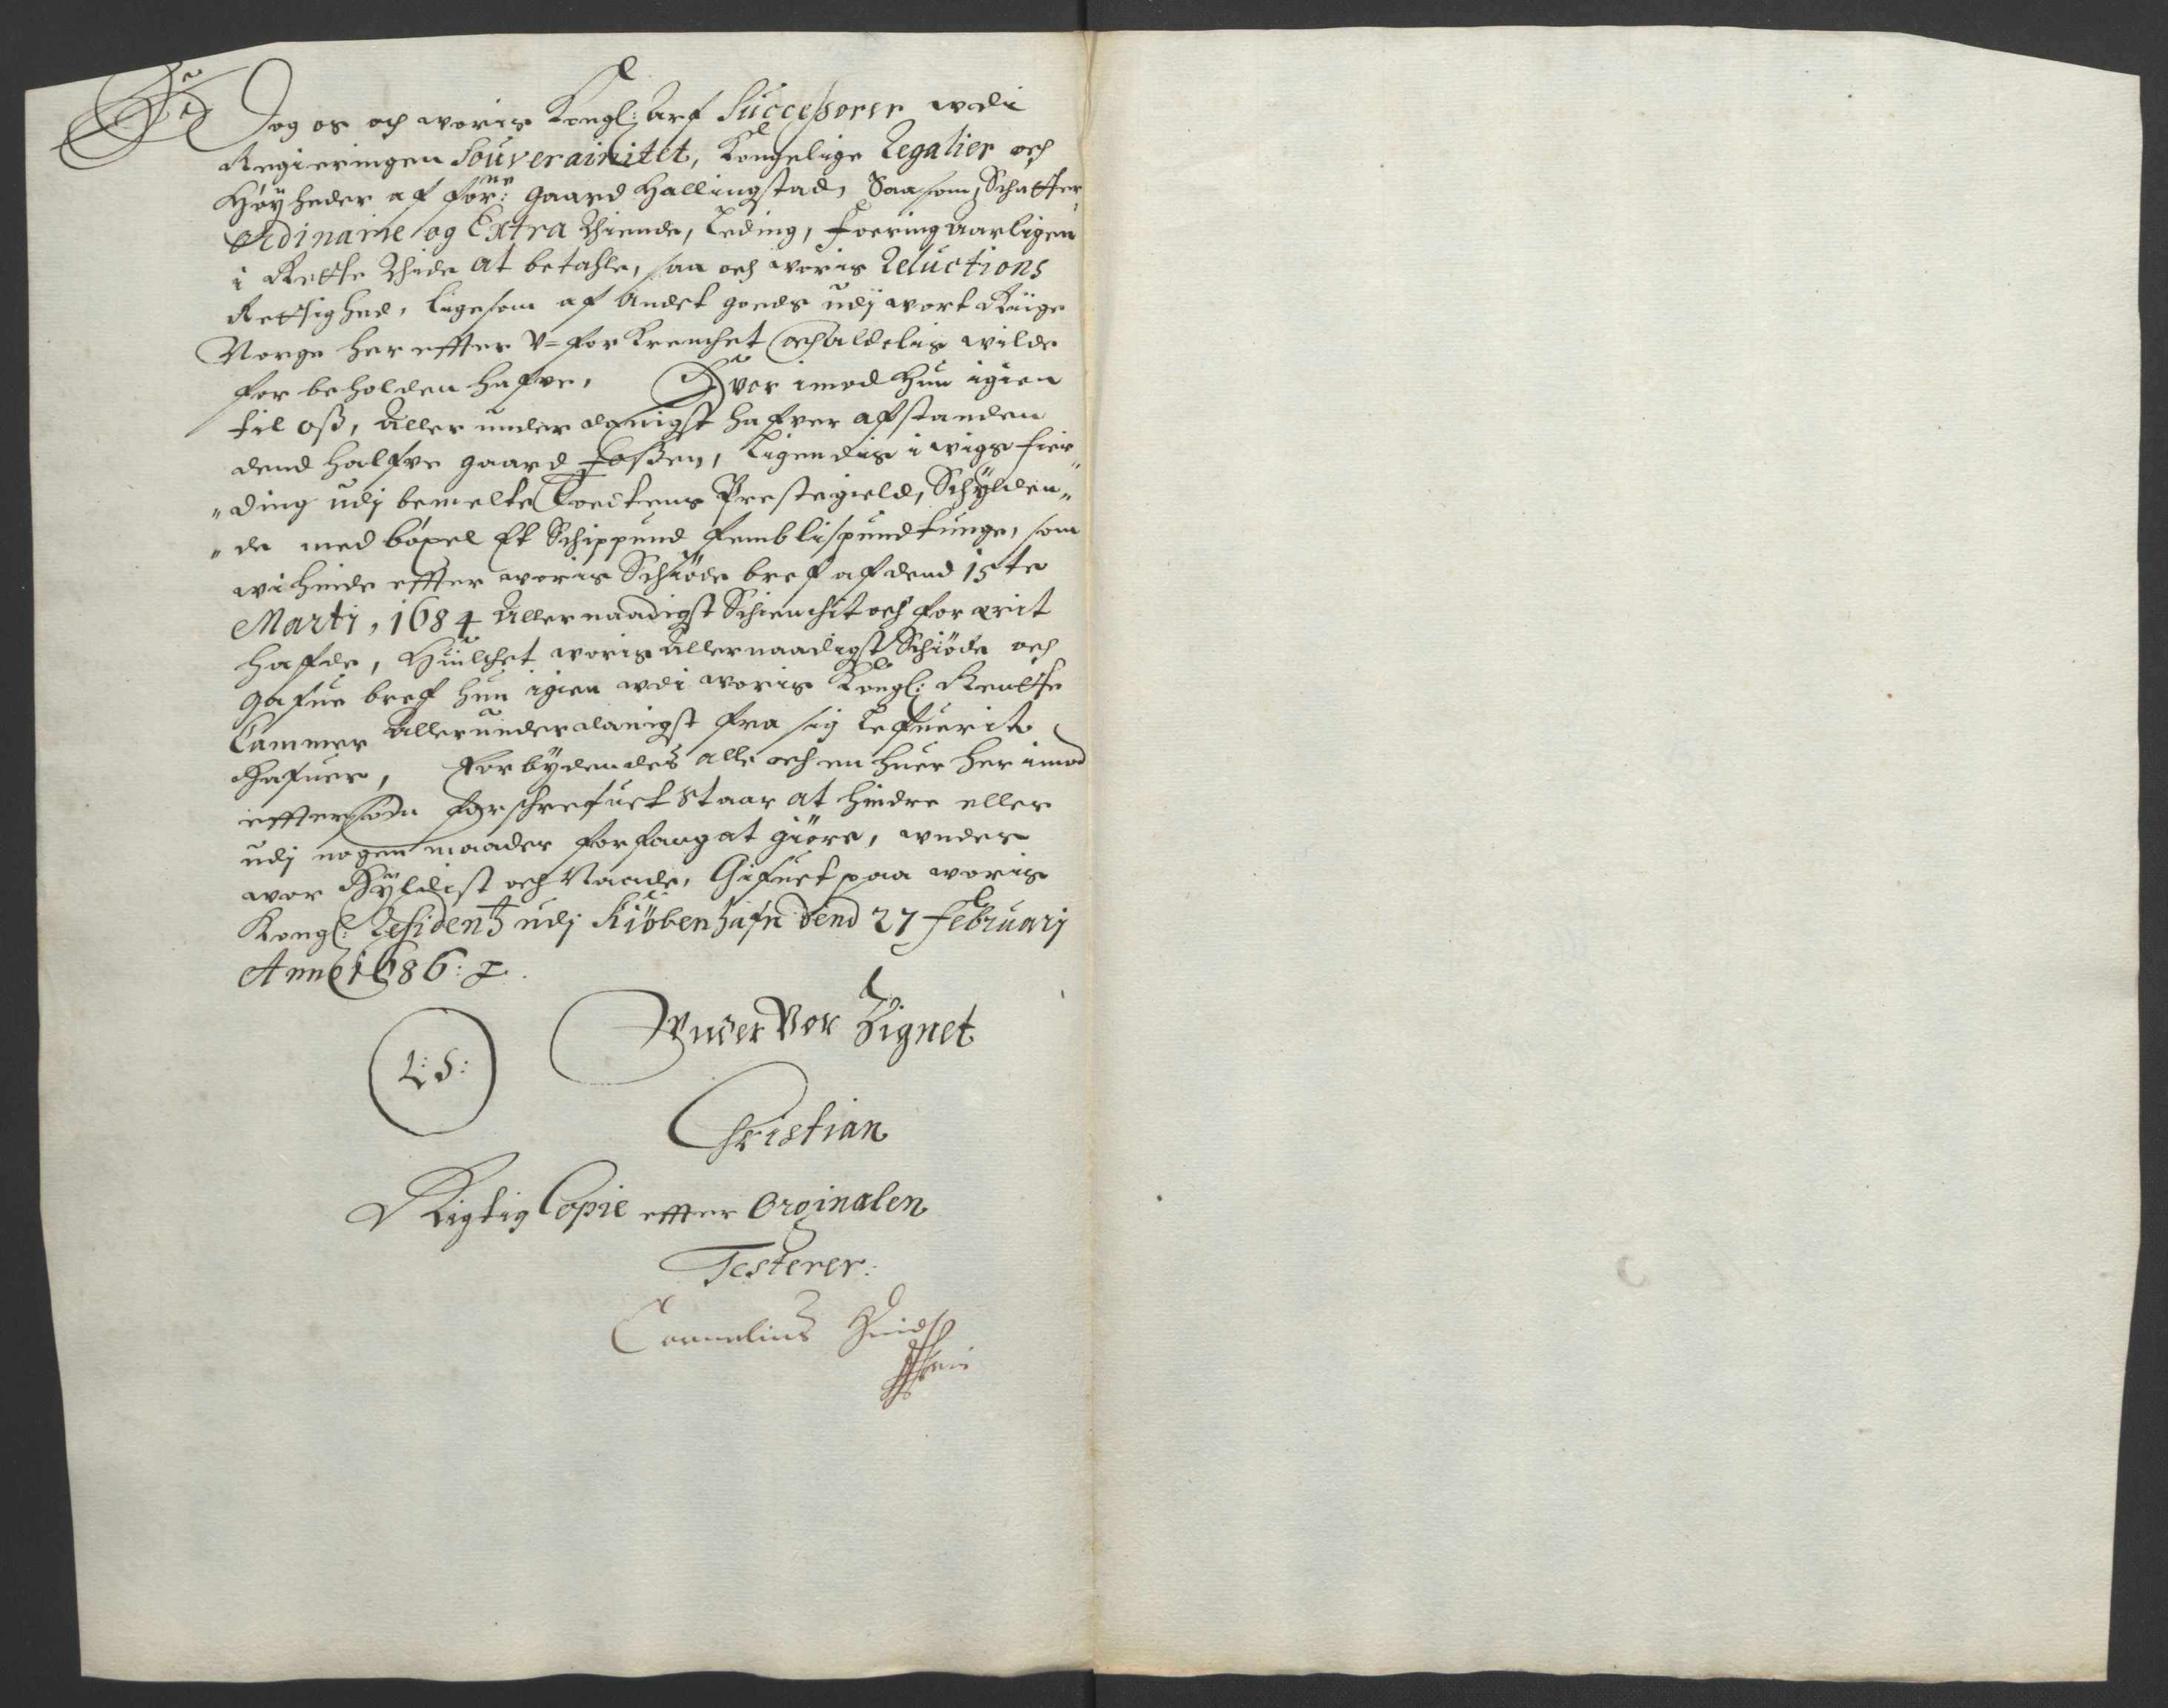 Dog os och woris Kongl: Arf Successorer wdi
Regieringen Souverainitet, Kongelige Regalier och
Høyheder af forne: gaard Hallingstad, Saasom, Schatter
Ordinarie og Extra Thiende, Leding, Foering Aarligen
i Rette Thide at betahle, saa och woris Reluctions
Rettighed, ligesom af Andet goeds udj wort Riige
Norge her effter V=forkrenchet och Aldelis wilde
for beholden hafve, Hver imod Hun igien
til oss, Aller underdanigst hafver afstanden
dend halfve gaard Fossen, Ligendis i wigs fier
"ding udj bemelte Prestegield, Schylden"
"de med böxel Et Schippund fembLispund tunge, som
wi hinde effter woris Schiöde bref af dend 15te
Marti, 1684 Allernaadigst Schienchit och forærit
hafde, Huilchet woris Allernaadigst Schiöde och
gafue bref hun igien wdi woris Kongl: Rentte
Cammer Allerunderdanigst fra sig Lefuerit
Hafuer, Forbydendes alle och en huer her imod
effter som forschrefuet Staar at hindre eller
udj nogen maader forfang at giöre, under
wor Hyldist och Naade, Gifuet paa woris
Kongl: Residentz udj Kiöbenhafn dend 27 Februarj
Anno 1686:
Under Vor Zignet
L: S:
Christian
Rigtig Copie effter Orginalen
Testerer:
Cornelius